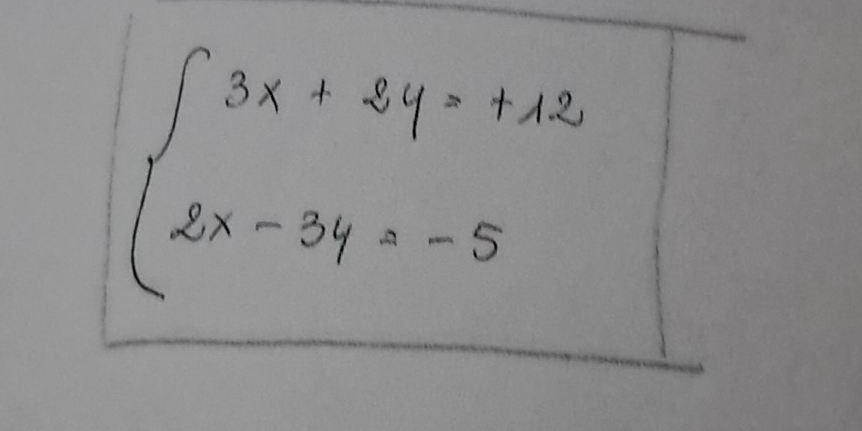 3x + 2y = +12
2x - 3y = - 5